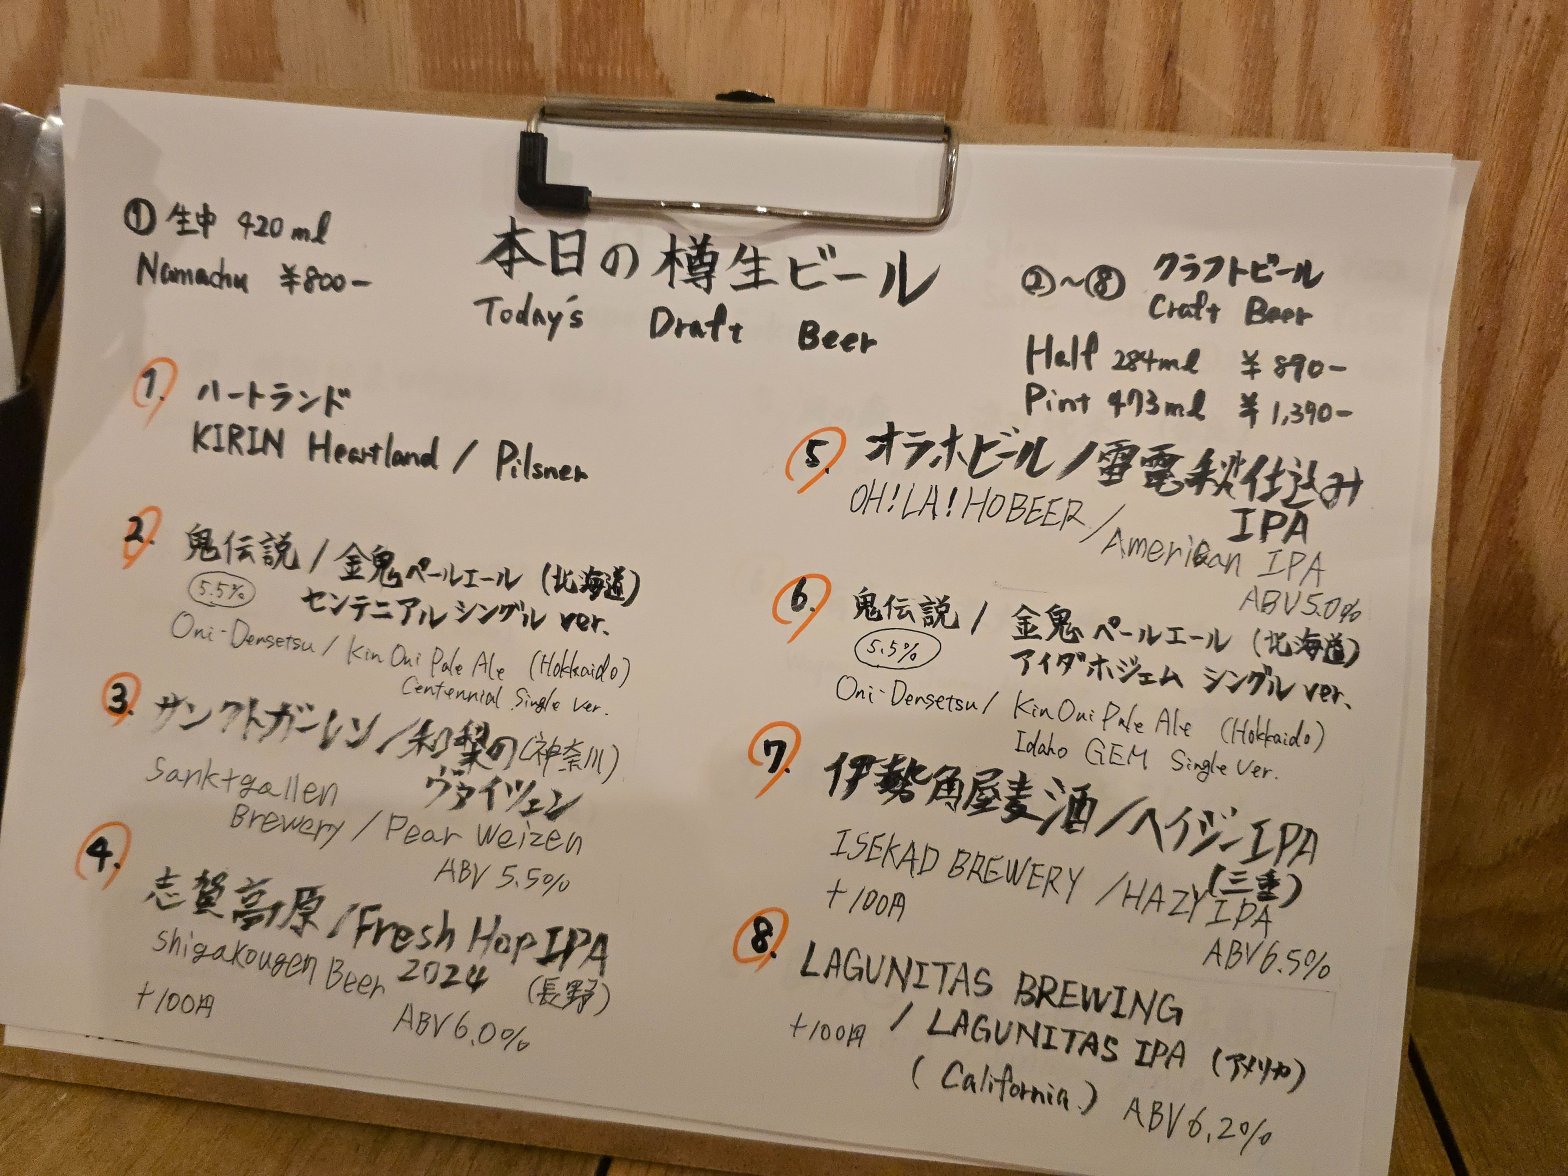 ① 生中 420ml
Namachu ¥800-
本日の樽生ビール
Today's Draft Beer
②～⑧ クラフトビール
Craft Beer
Half 284ml ¥890-
Pint 473ml ¥1,390-
1. ハートランド
KIRIN Heartland / Pilsner
2. 鬼伝説 / 金鬼ペールエール (北海道)
5.5% センテニアル シングル ver.
Oni-Densetsu / Kin Oni Pale Ale (Hokkaido)
Centennial Single ver.
3. サンクトガーレン / 和梨の (神奈川)
ヴァイツェン
Sanktgallen
Brewery / Pear Weizen
ABV 5.5%
4. 志賀高原 / Fresh Hop IPA
2024 (長野)
Shigakougen Beer
+100円 ABV 6.0%
5. オラホビール / 雷電 秋仕込み
IPA
OH!LA!HO BEER / American IPA
ABV 5.0%
6. 鬼伝説 / 金鬼 ペールエール (北海道)
5.5% アイダホジェム シングル ver.
Oni-Densetsu / Kin Oni Pale Ale (Hokkaido)
Idaho GEM Single ver.
7. 伊勢角屋麦酒 / ヘイジーIPA
(三重)
ISEKAD BREWERY / HAZY IPA
+100円 ABV 6.5%
8. LAGUNITAS BREWING
/ LAGUNITAS IPA (アメリカ)
+100円 (California) ABV 6.2%